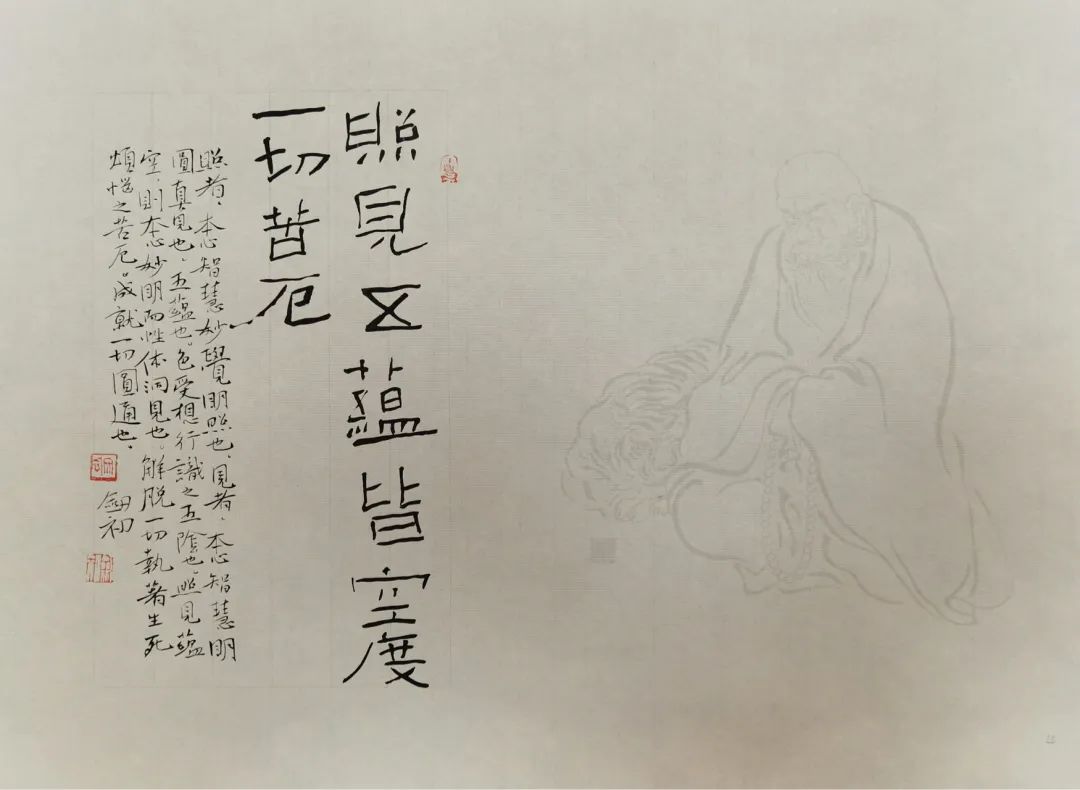 照見五蘊皆空度
一切苦厄
照者，本心智慧妙覺明照也，見者，本心智慧明
圓真見也，五蘊也。色受想行識之五陰也。照見蘊
空，則本心妙明而性体洞見也。解脱一切執著生死
煩惱之苦厄。成就一切圓通也，
劍初